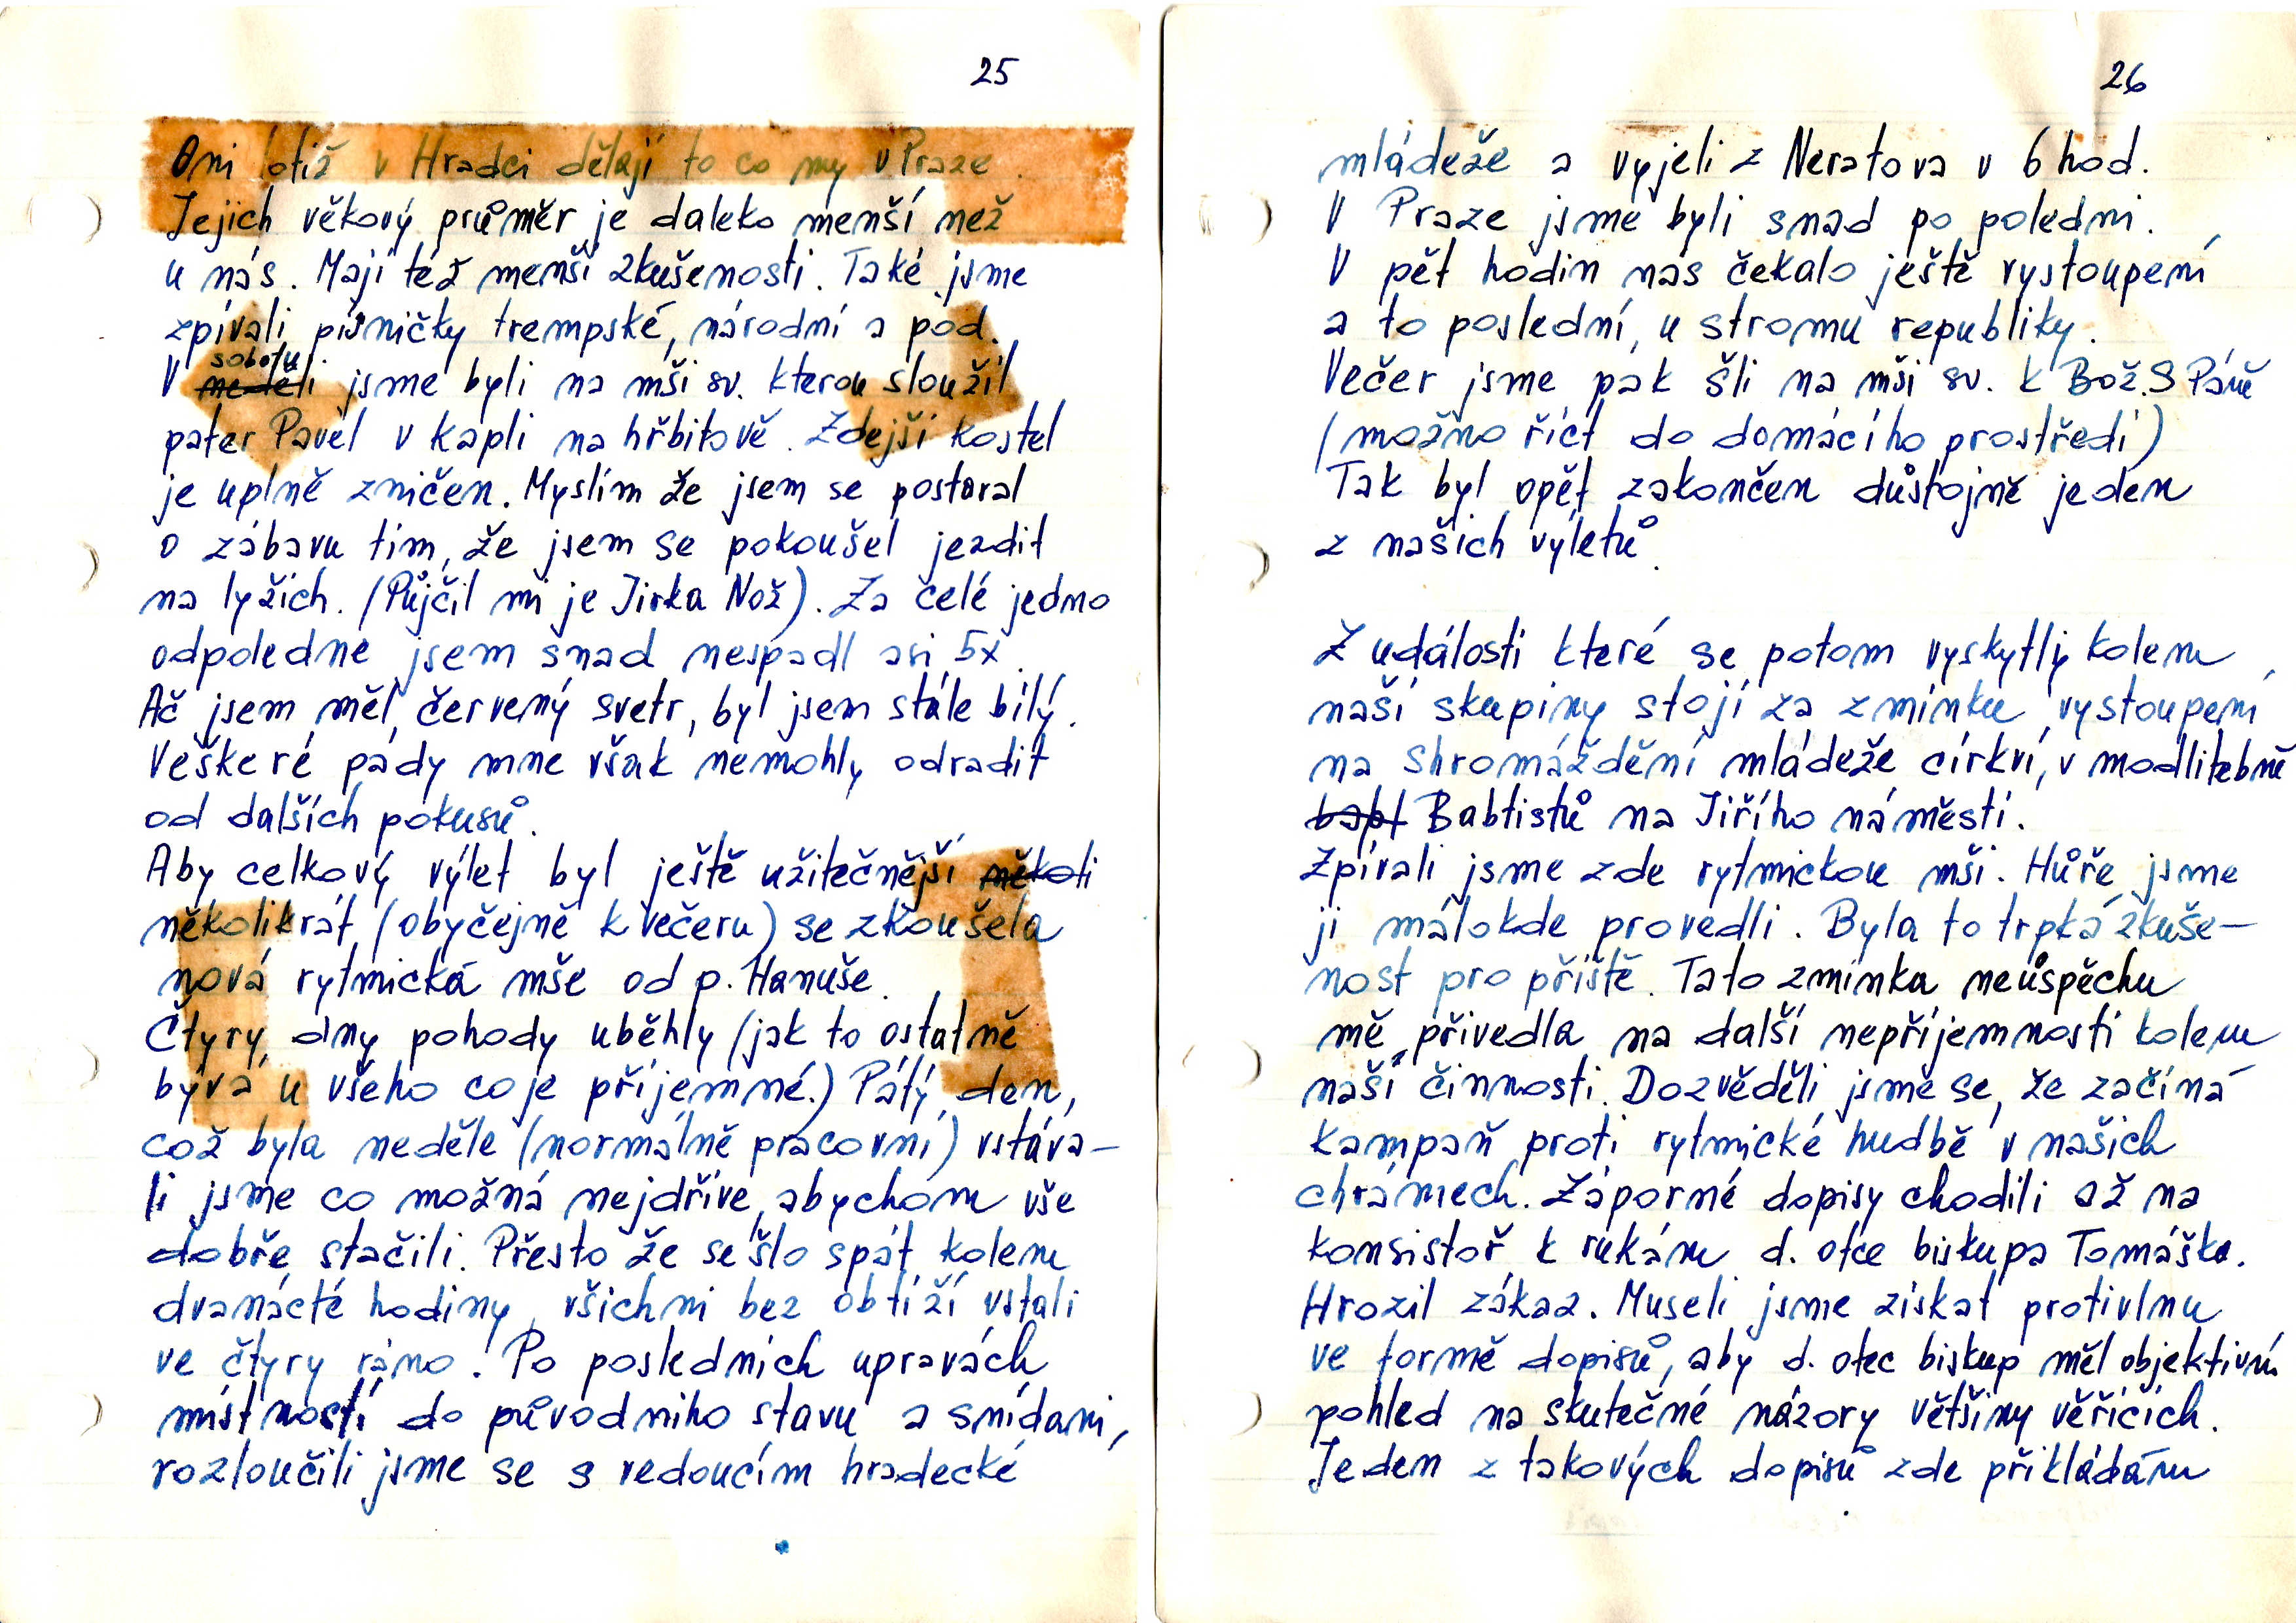 25
Oni totiž v Hradci dělají to co my v Praze.
Jejich věkový průměr je daleko menší než
u nás. Mají též menší zkušenosti. Také jsme
zpívali písničky trempské, národní a pod.
sobotu
V neděli jsme byli na mši sv. kterou sloužil
pater Pavel v kapli na hřbitově. Zdejší kostel
je uplně zničen. Myslím že jsem se postaral
o zábavu tím, že jsem se pokoušel jezdit
na lyžích. (Půjčil mi je Jirka Nož). Za celé jedno
odpoledne jsem snad nespadl asi 5x.
Ač jsem měl červený svetr, byl jsem stále bílý.
Veškeré pády mne však nemohly odradit
od dalších pokusů.
Aby celkový výlet byl ještě užitečnější někoti
několikrát (obyčejně k večeru) se zkoušela
nová rytmická mše od p. Hanuše.
Čtyry dny pohody uběhly (jak to ostatně
bývá u všeho co je příjemné.) Pátý den,
což byla neděle (normálně pracovní) vstáva-
li jsme co možná nejdříve, abychom vše
dobře stačili. Přesto že se šlo spát kolem
dvanácté hodiny, všichni bez obtíží vstali
ve čtyry ráno. Po posledních upravách
místností do původního stavu a snídani,
rozloučili jsme se s vedoucím hradecké
26
mládeže a vyjeli z Neratova v 6 hod.
V Praze jsme byli snad po poledni.
V pět hodin nás čekalo ještě vystoupení
a to poslední, u stromu republiky.
Večer jsme pak šli na mši sv. k Bož. S Páně
(možno říct do domácího prostředí)
Tak byl opět zakončen důstojně jeden
z našich výletů.
Z událostí které se potom vyskytly kolem
naší skupiny stojí za zmínku vystoupení
na shromáždění mládeže církví, v modlitebně
bapt Babtistů na Jiřího náměstí.
Zpívali jsme zde rytmickou mši. Hůře jsme
ji málokde provedli. Byla to trpká zkuše-
nost pro příště. Tato zmínka neúspěchu
mě přivedla na další nepříjemnosti kolem
naší činnosti. Dozvěděli jsme se, že začíná
kampaň proti rytmické hudbě v našich
chrámech. Záporné dopisy chodili až na
konsistoř k rukám d. otce biskupa Tomáška.
Hrozil zákaz. Museli jsme získat protivlnu
ve formě dopisů, aby d. otec biskup měl objektivní
pohled na skutečné názory většiny věřících.
Jeden z takových dopisů zde přikládám